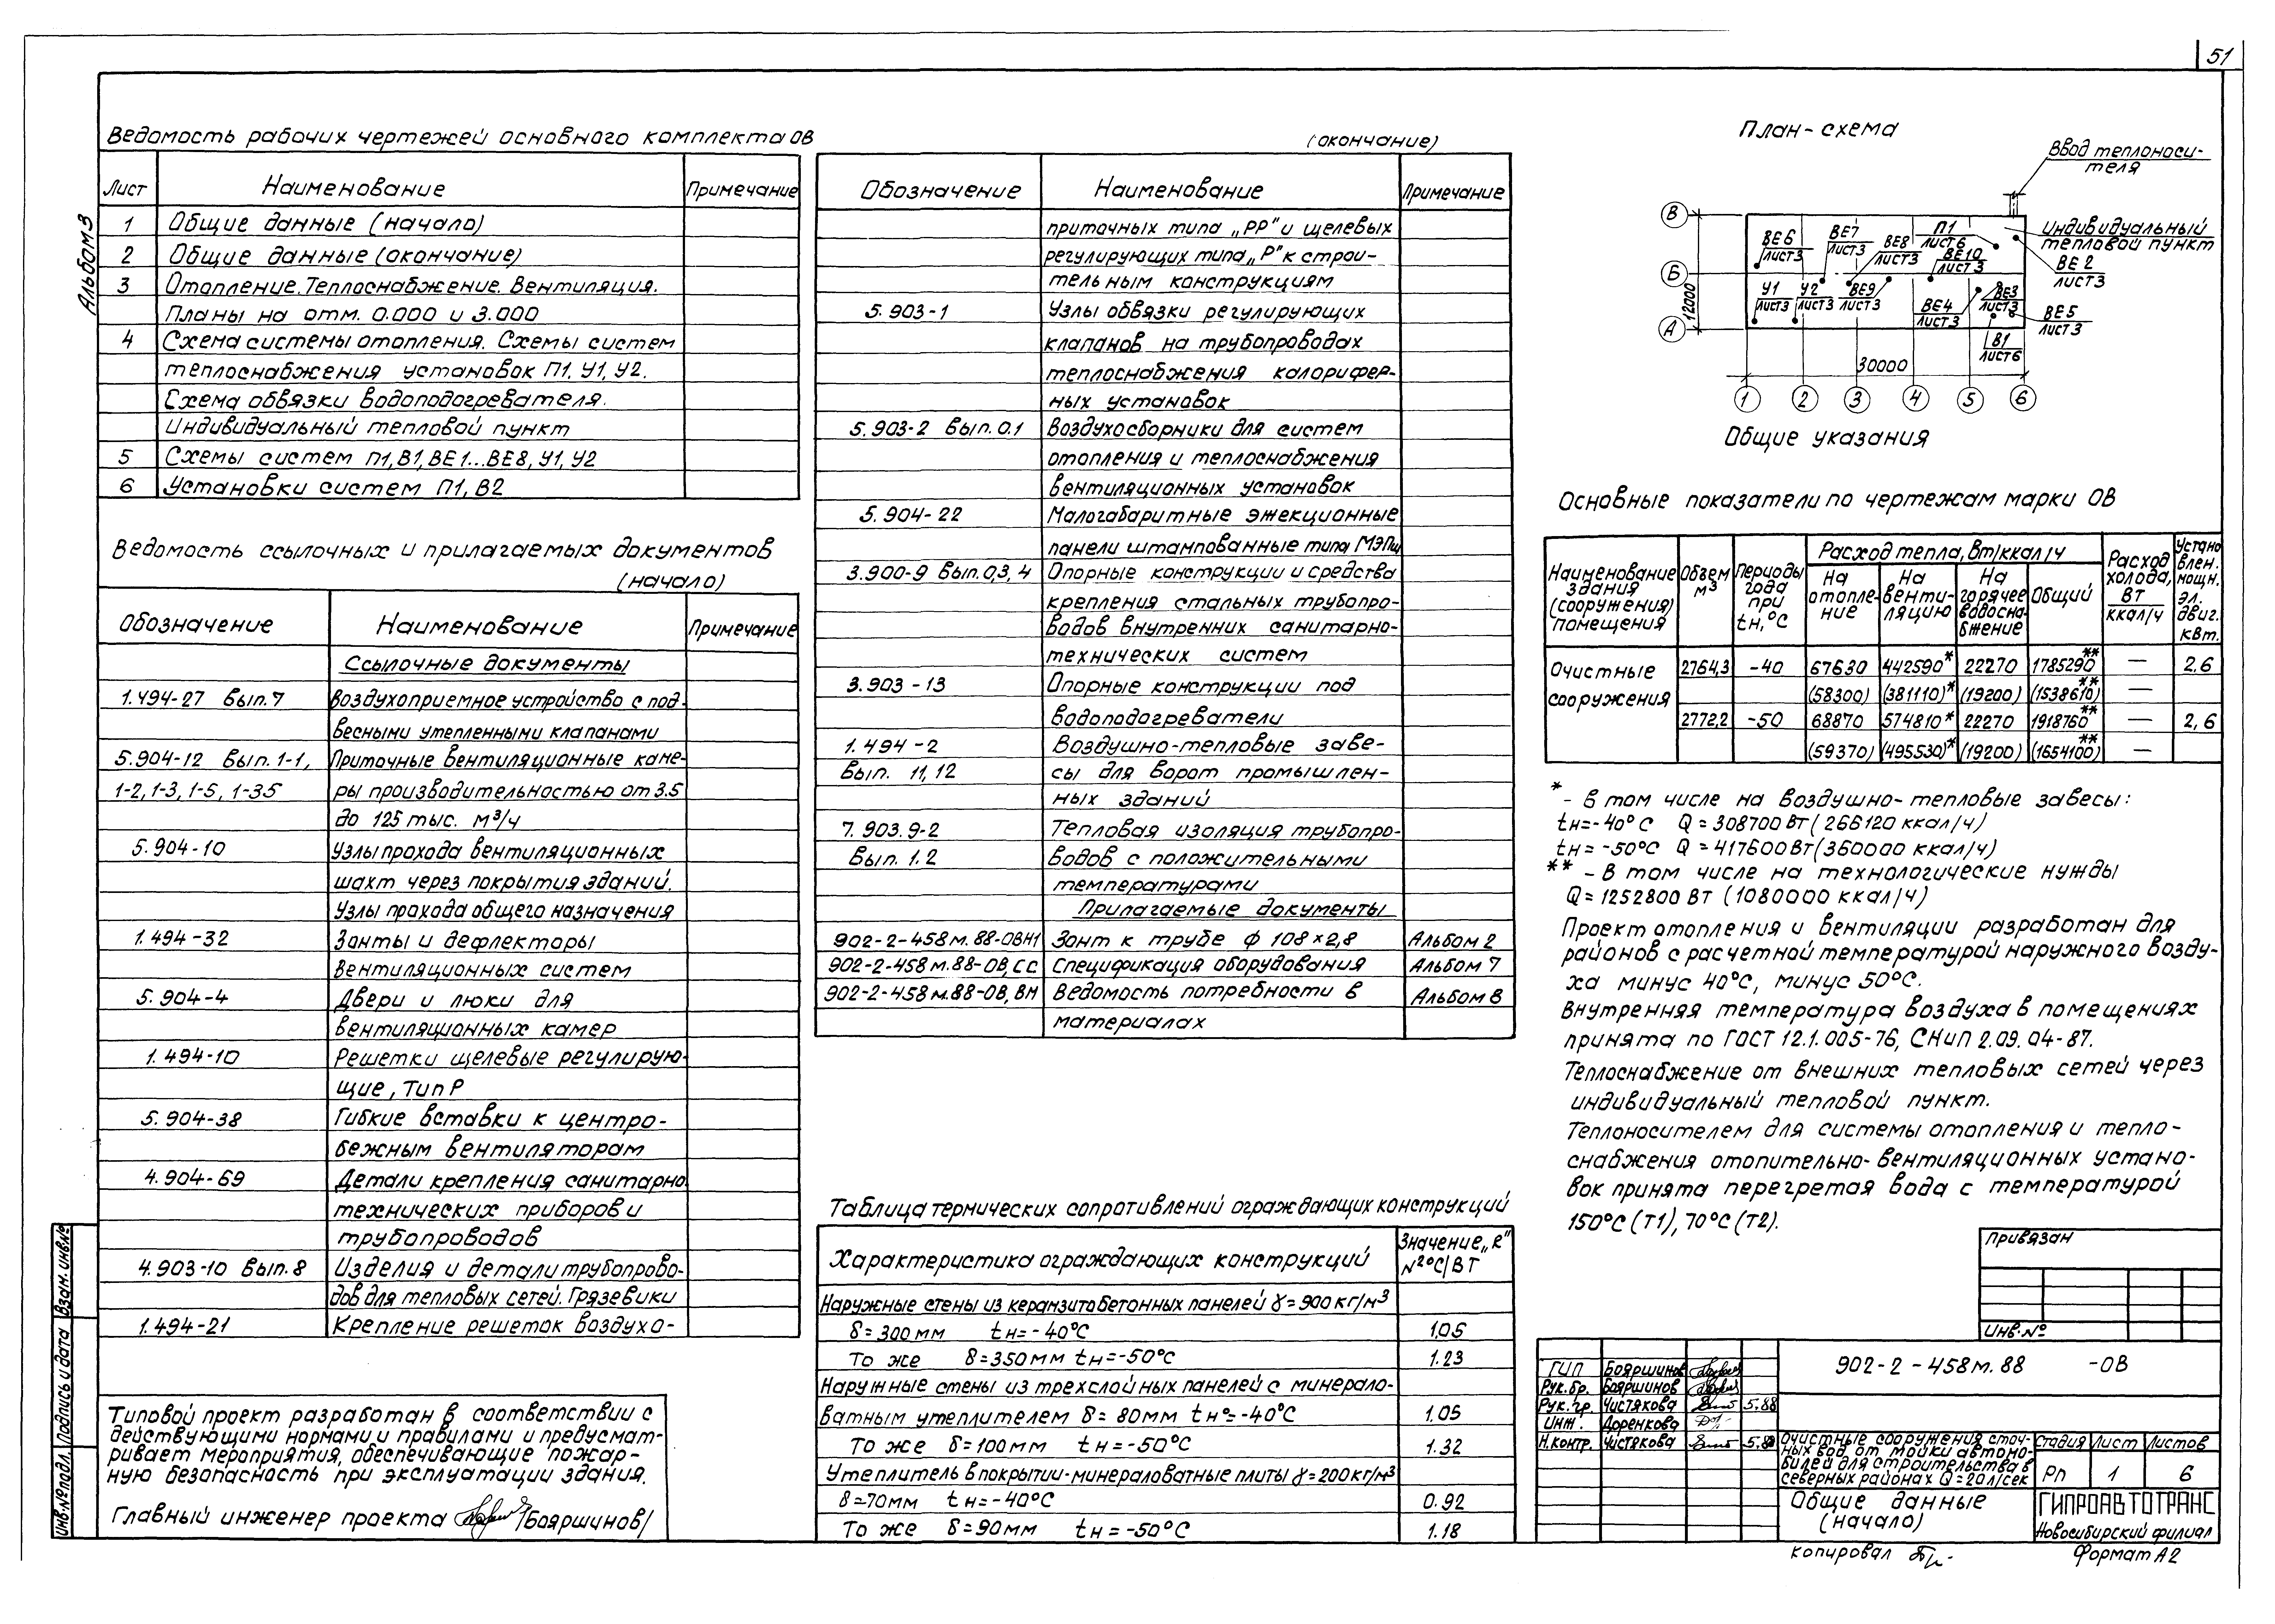 51
Альбом 3
Ведомость рабочих чертежей основного комплекта ОВ
Лист Наименование Примечание
1 Общие данные (начало)
2 Общие данные (окончание)
3 Отопление. Теплоснабжение. Вентиляция.
Планы на отм. 0.000 и 3.000
4 Схема системы отопления. Схемы систем
теплоснабжения установок П1, У1, У2.
Схема обвязки водоподогревателя.
Индивидуальный тепловой пункт
5 Схемы систем П1, В1, ВЕ1...ВЕ8, У1, У2
6 Установки систем П1, В2
Ведомость ссылочных и прилагаемых документов
(начало)
Обозначение Наименование Примечание
Ссылочные документы
1.494-27 Вып. 7 Воздухоприемное устройство с под-
весными утепленными клапанами
5.904-12 Вып. 1-1, Приточные вентиляционные каме-
1-2, 1-3, 1-5, 1-35 ры производительностью от 3.5
до 125 тыс. м³/ч
5.904-10 Узлы прохода вентиляционных
шахт через покрытия зданий.
Узлы прохода общего назначения
1.494-32 Зонты и дефлекторы
вентиляционных систем
5.904-4 Двери и люки для
вентиляционных камер
1.494-10 Решетки щелевые регулирую-
щие, Тип Р
5.904-38 Гибкие вставки к центро-
бежным вентиляторам
4.904-69 Детали крепления санитарно
технических приборов и
трубопроводов
4.903-10 Вып. 8 Изделия и детали трубопрово-
дов для тепловых сетей. Грязевики
1.494-21 Крепление решеток воздухо-
Типовой проект разработан в соответствии с
действующими нормами и правилами и предусмат-
ривает мероприятия, обеспечивающие пожар-
ную безопасность при эксплуатации здания.
Главный инженер проекта /Бояршинов/
Инв. № подл. Подпись и дата Взам. инв. №
(окончание)
Обозначение Наименование Примечание
приточных типа „РР" и щелевых
регулирующих типа „Р" к строи-
тельным конструкциям
5.903-1 Узлы обвязки регулирующих
клапанов на трубопроводах
теплоснабжения калорифер-
ных установок
5.903-2 Вып. 0.1 Воздухосборники для систем
отопления и теплоснабжения
вентиляционных установок
5.904-22 Малогабаритные эжекционные
панели штампованные типа МЭПш
3.900-9 Вып. 0,3,4 Опорные конструкции и средства
крепления стальных трубопро-
водов внутренних санитарно-
технических систем
3.903-13 Опорные конструкции под
водоподогреватели
1.494-2 Воздушно-тепловые заве-
Вып. 11, 12 сы для ворот промышлен-
ных зданий
7.903.9-2 Тепловая изоляция трубопро-
Вып. 1.2 водов с положительными
температурами
Прилагаемые документы
902-2-458м.88-ОВН1 Зонт к трубе ф 108×2,8 Альбом 2
902-2-458м.88-ОВ,СС Спецификация оборудования Альбом 7
902-2-458м.88-ОВ,ВМ Ведомость потребности в Альбом 8
материалах
Таблица термических сопротивлений ограждающих конструкций
Характеристика ограждающих конструкций Значение „R"
м²°С/ВТ
Наружные стены из керамзитобетонных панелей γ=900 кг/м³
δ=300 мм tн=-40°С 1,05
То же δ=350 мм tн=-50°С 1.23
Наружные стены из трехслойных панелей с минерало-
ватным утеплителем δ=80мм tн=-40°С 1.05
То же δ=100мм tн=-50°С 1.32
Утеплитель в покрытии-минераловатные плиты γ=200 кг/м³
δ=70мм tн=-40°С 0.92
То же δ=90мм tн=-50°С 1.18
План-схема
Ввод теплоноси-
теля
Индивидуальный
тепловой пункт
В Б А
12000
ВЕ6 лист3
ВЕ7 лист3
ВЕ8 лист3
П1 лист6
ВЕ10 лист3
ВЕ2 лист3
У1 лист3
У2 лист3
ВЕ9 лист3
ВЕ4 лист3
ВЕ3 лист3
ВЕ5 лист3
В1 лист6
30000
1 2 3 4 5 6
Общие указания
Основные показатели по чертежам марки ОВ
Наименование здания (сооружения) помещения
Объем м³
Периоды года при tн,°С
Расход тепла, Вт/ккал/ч
На отопле-ние
На венти-ляцию
На горячее водосна-бжение
Общий
Расход холода, ВТ ккал/ч
Устано влен. мощн. эл. двиг. квт.
Очистные 2764,3 -40 67630 442590* 22270 1785290** — 2,6
сооружения (58300) (381110)* (19200) (1538610)** —
2772,2 -50 68870 574810* 22270 1918760** — 2,6
(59370) (495530)* (19200) (1654100)** —
* - в том числе на воздушно-тепловые завесы:
tн=-40°С Q=308700 Вт (266120 ккал/ч)
tн=-50°С Q=417600 Вт (360000 ккал/ч)
** - в том числе на технологические нужды
Q=1252800 Вт (1080000 ккал/ч)
Проект отопления и вентиляции разработан для
районов с расчетной температурой наружного возду-
ха минус 40°С, минус 50°С.
Внутренняя температура воздуха в помещениях
принята по ГОСТ 12.1.005-76, СНиП 2.09.04-87.
Теплоснабжение от внешних тепловых сетей через
индивидуальный тепловой пункт.
Теплоносителем для системы отопления и тепло-
снабжения отопительно-вентиляционных устано-
вок принята перегретая вода с температурой
150°С (Т1), 70°С (Т2).
Привязан
Инв. №
ГИП Бояршинов
Рук. бр. Бояршинов
Рук. гр. Чистякова 5.88
Инж. Доренкова
Н.контр. Чистякова 5.88
902-2-458м.88 -ОВ
Очистные сооружения сточ-
ных вод от мойки автомо-
билей для строительства в
северных районах Q=20л/сек
Стадия Лист Листов
Рп 1 6
Общие данные
(начало)
ГИПРОАВТОТРАНС
Новосибирский филиал
Копировал
Формат А2